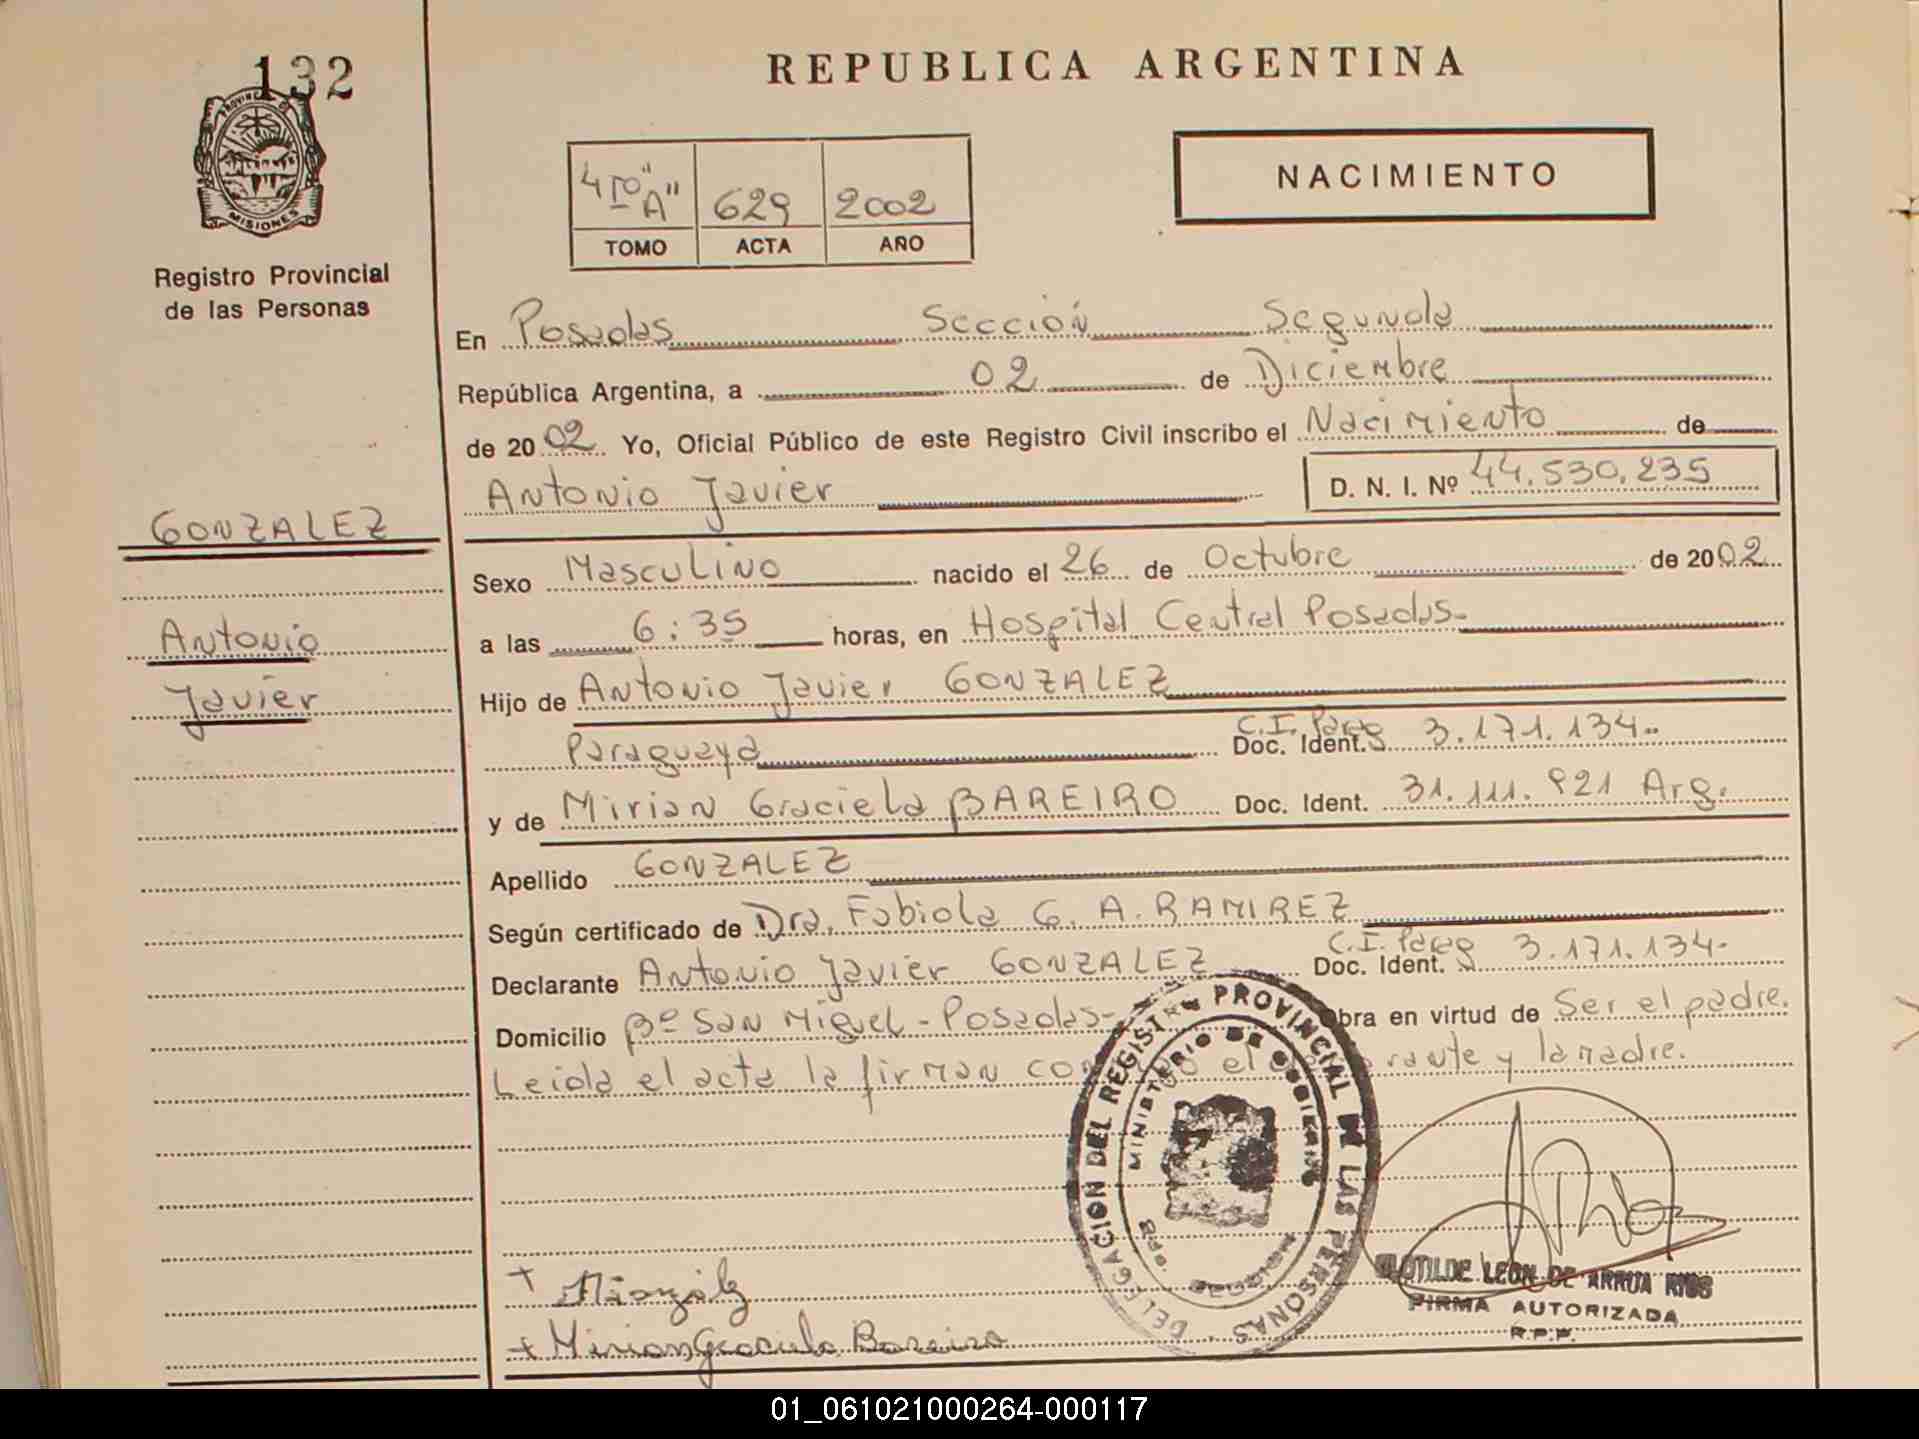 132
PROVINCIA DE
MISIONES
Registro Provincial
de las Personas
REPUBLICA ARGENTINA
4TO "A" 629 2002
TOMO ACTA AÑO
NACIMIENTO
En Posadas Sección Segunda
República Argentina, a 02 de Diciembre
de 2002 Yo, Oficial Público de este Registro Civil inscribo el Nacimiento de
Antonio Javier D. N. I. Nº 44.530.235
GONZALEZ
Antonio
Javier
Sexo Masculino nacido el 26 de Octubre de 2002
a las 6:35 horas, en Hospital Central Posadas-
Hijo de Antonio Javier GONZALEZ
Paraguaya C.I. Parag Doc. Ident. 3.171.134-
y de Mirian Graciela BAREIRO Doc. Ident. 31.111.921 Arg.
Apellido GONZALEZ
Según certificado de Dra. Fabiola G. A. RAMIREZ
Declarante Antonio Javier GONZALEZ C.I. Parag Doc. Ident. 3.171.134-
Domicilio Bº San Miguel - Posadas- bra en virtud de Ser el padre.
Leida el acta la firman el y la madre.
DELEGACION DEL REGISTRO PROVINCIAL DE LAS PERSONAS
MINISTERIO DE GOBIERNO
+
+ Mirian Graciela Bareiro
CLOTILDE LEON DE ARRUA RIOS
FIRMA AUTORIZADA
R.P.P.
01_061021000264-000117